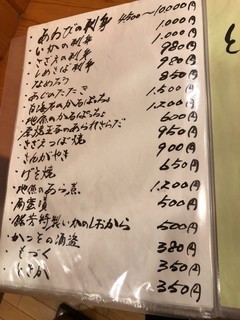 ・あわびの刺身 4500〜10000円
・いかの刺身 1.000円
・さざえの刺身 1.000円
・しめさば刺身 980円
・なめろう 980円
・あじのたたき 850円
・白海老のかるぱっちょ 1.500円
・地魚のかるぱっちょ 1.200円
600円
・さざえつぼ焼 950円
・さんがやき 900円
・げそ焼 650円
・地魚のあら煮
1.200円
500円
特製いかのしおから 500円
・かつおの酒盗 380円
・もづく 350円
350円